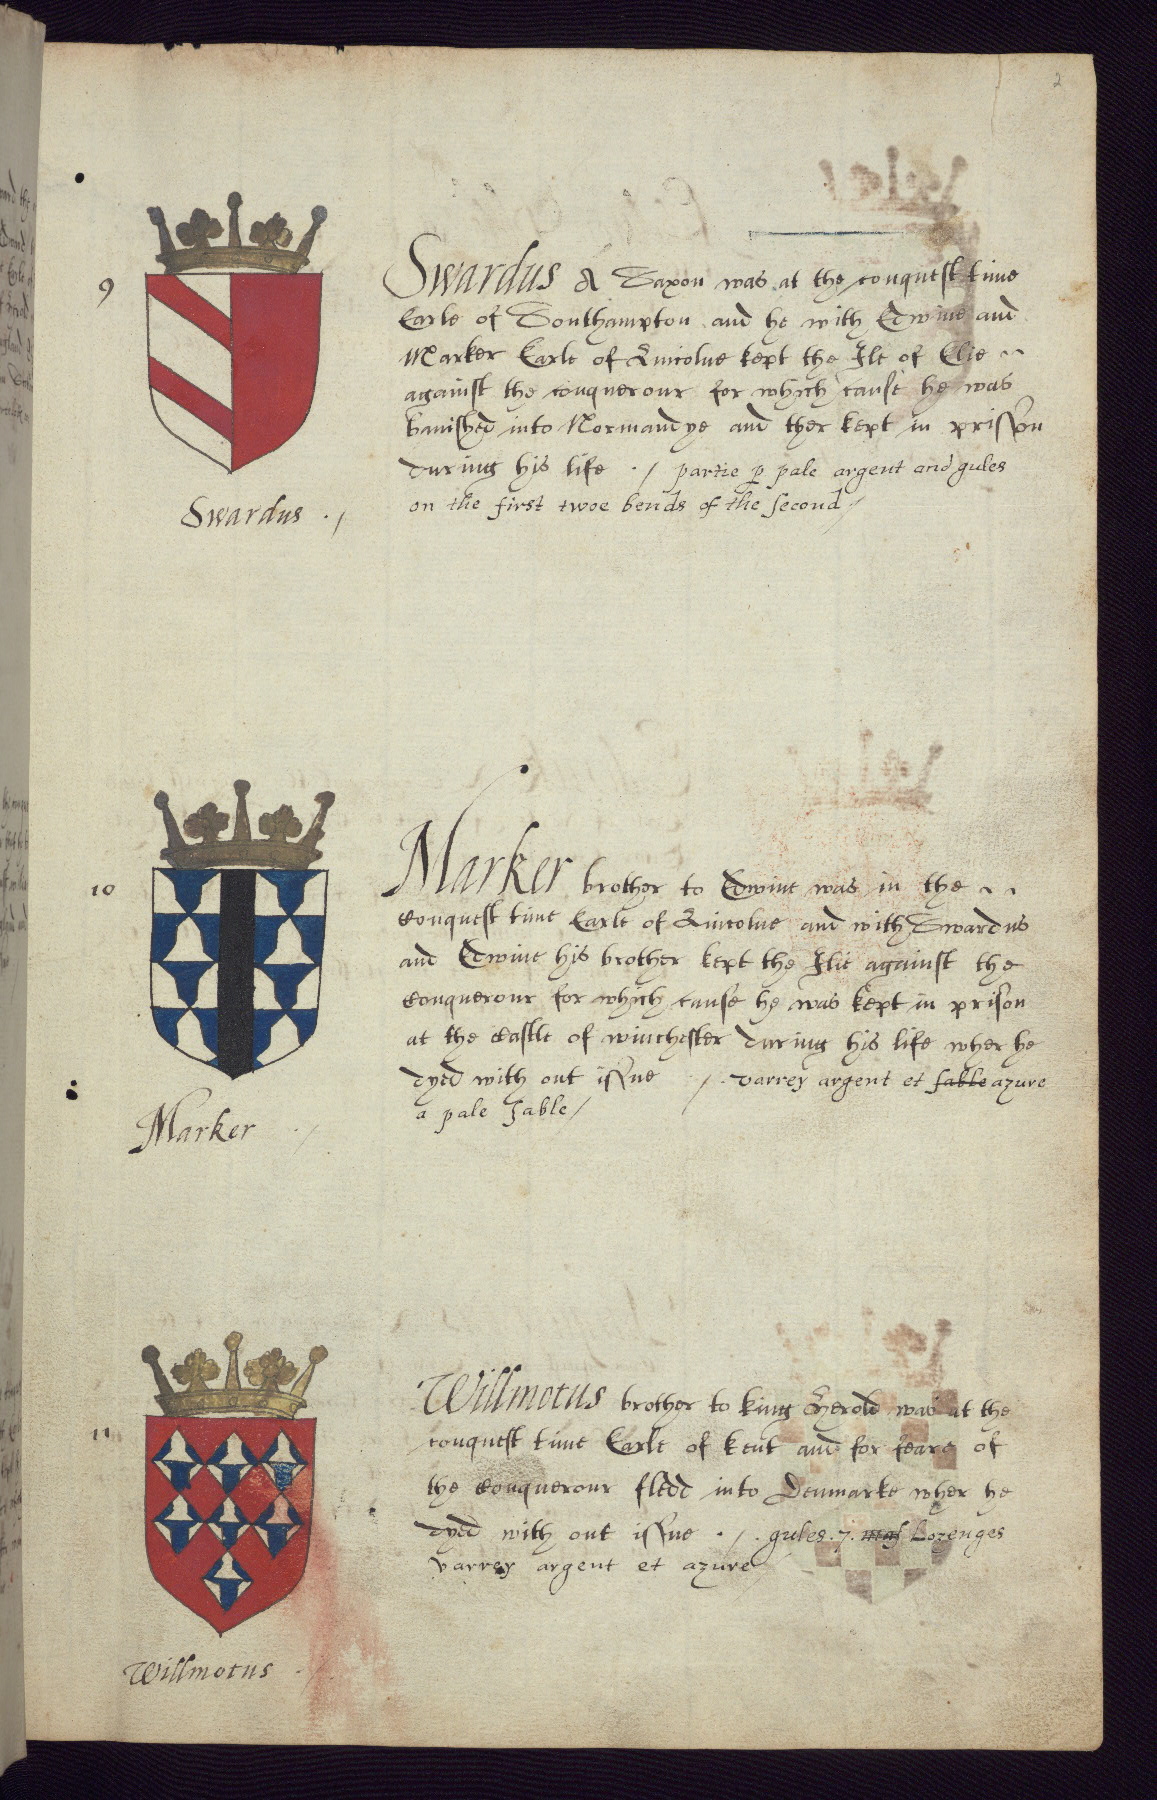 2
9
Swardus A Saxon was at the conquest time
Earle of Southampton and he with Edwine and
Marker Earle of Lincolne kept the Ile of Elie
against the conquerour for which cause he was
banished into Normandye and ther kept in prisson
during his life ./ partie p pale argent and gules
on the first twoe bends of the second/
Swardus ./
10
Marker brother to Edwine was in the
conquest time Earle of Lincolne and with Swardus
and Edwine his brother kept the Ilie against the
conquerour for which cause he was kept in prison
at the castle of winchester during his life wher he
dyed with out issue ./ varrey argent et sable azure
a pale sable/
Marker ./
11
Willmotus brother to king Herold was at the
conquest time Earle of kent and for feare of
the conquerour fledd into Denmarke wher he
dyed with out issue ./. gules .7. Lozenges
varrey argent et azure
Willmotus ./